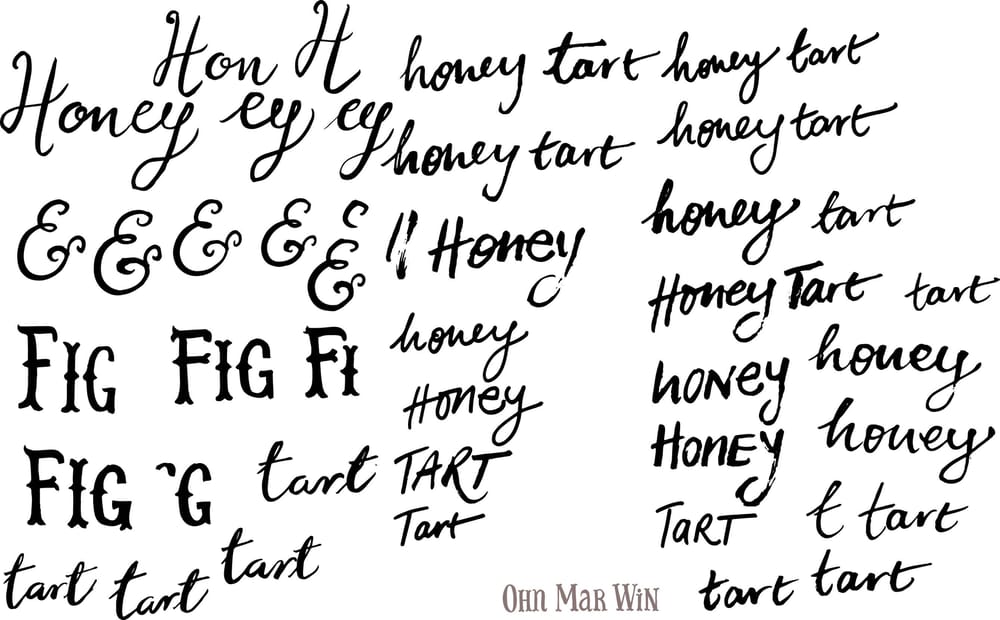 Hon H
Honey ey ey
& & & & &
&
FIG FIG FI
FIG G tart
tart tart tart
honey tart honey tart
honey tart honey tart
Honey honey tart
Honey Tart tart
honey
Honey
honey honey
TART
Honey honey
Tart
TaRT t tart
tart tart
Ohn Mar Win